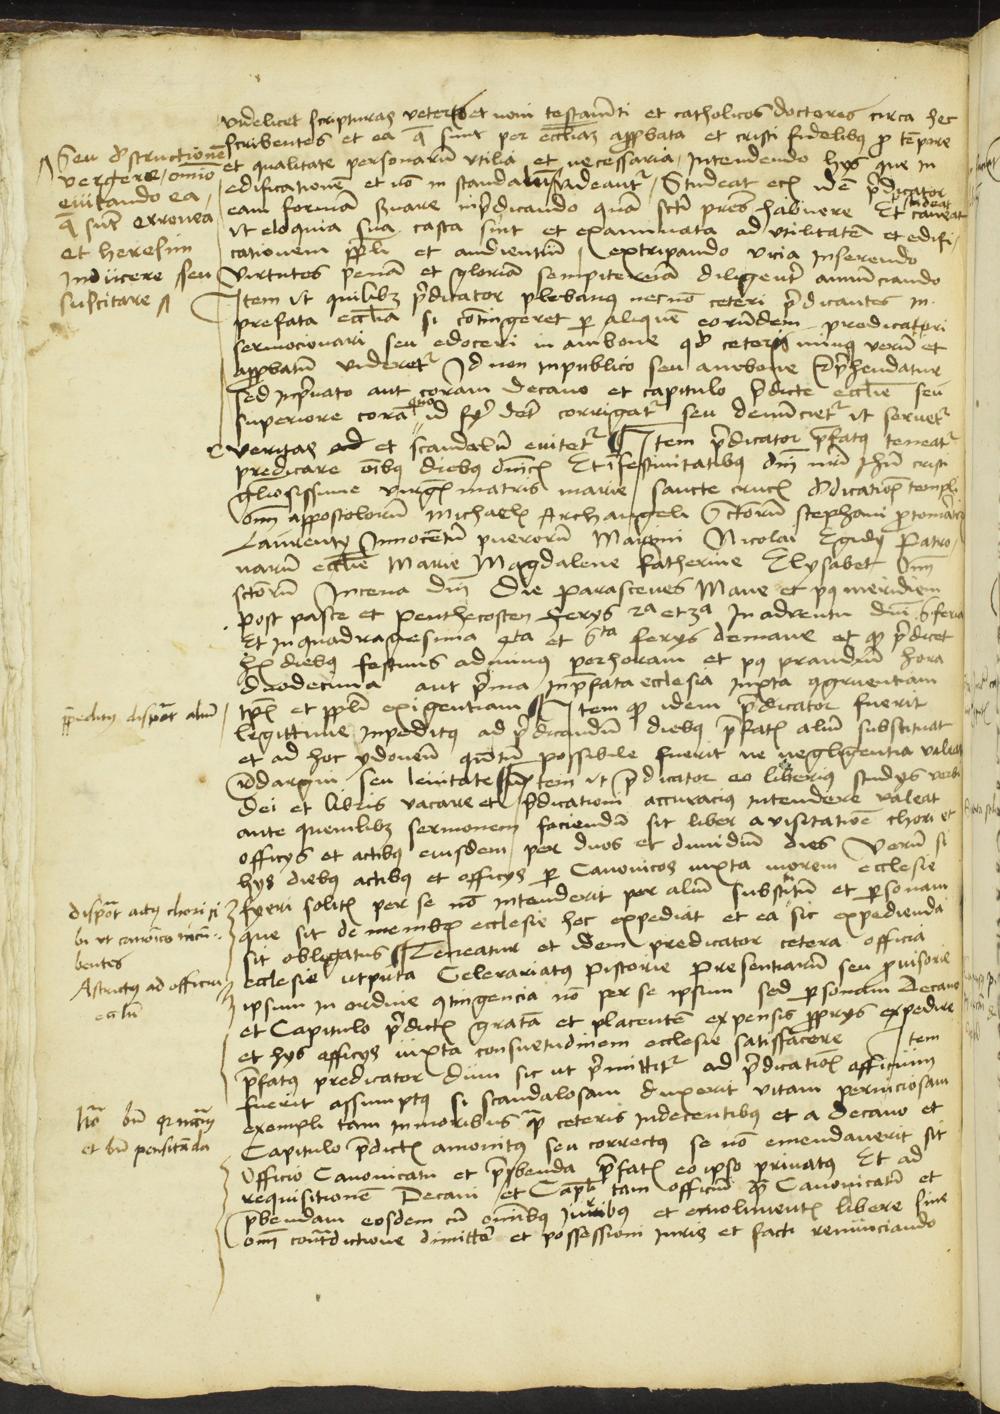 videlicet scripturas veteris et novi testam̄ti et catholicos doctores circa hec
scribentes et ea q̄ sunt per eccl̄iaz app̲bata et cristi fidelibȝ p̲ tēpore
et qualitate personarū utilia et necessaria, Intendendo hys que in
edificationē et nō in scandalum videantʳ, Studeat ecīa idē p̄dicator
eam formam in p̄dicando quā sc̄ti pr̄es habuere Et studeat caveat
ut eloquia sua casta sint et examinata ad utilitatē et edifi-
cationem pp̄li et audientiū, extirpando vicia Inserendo
virtutes penam et gloriā sempiternā diligent̄ annūciando
Item ut quilibȝ p̄dicator plebanus necnō ceteri p̄dicantes in
prefata eccl̄ia si cōtingeret p̲ aliquē eorūdem predicatori
sermocionari seu edoceri in ambone qd̄ ceteris minus verū et
app̲batū videretʳ Id non in publico seu ambone rep̄hendatur
Sed in p̄vato aut coram decano et capitulo p̄dicte eccl̄ie seu
superiore corā quo id fieri det̄ corrigatʳ seu denūcietʳ ut servetʳ
veritas et scandalū evitetʳ Item p̄dicator p̄fatus teneatʳ
predicare oībus diebus dn̄icis Et in festivitatibus dn̄i nr̄i Jhū cristi
gl̄osissime virgīs matris marie, sancte crucis dedicatiōis templi
oīm appostolorū Michaelis Archangeli Sctorū Stephani p̲tomr̄is
Laurenty Innocētū puerorū Martini Nicolai Egidy Patro-
narū eccl̄ie Marie Magdalene katherine Elysabet Oīm
sctorū In cena dn̄i Die parasceves Mane et pꝰ meridiem
post pasce et penthecosten ferys 2ᵃ et 3ᵃ In adventu dn̄i 6 feria
Et in quadragesima 4ta et 6ta ferys de mane et qd̄ p̄dicet
hys diebus festivis ad minus per horam et pꝰ prandiū hora
duodecima aut p̄ma in p̄fata ecclesia iuxta congruentiam
tp̄is et pp̄li exigentiam Item qd̄ idem p̄dicator fuerit
legittime inpeditus ad p̄dicandū diebus p̄fatis aliū substituat
et ad hoc ydoneū quātū possibile fuerit ne negligentia valeat
redargui seu levitate Item ut p̄dicator eo liberius studys verbi
dei et libris vacare et p̄dicationi accuracius intendere valeat
ante quemlibȝ sermonem faciendū sit liber a visitatiōe chori et
officys et actibus eiusdem, per duos et dimidiū dies Verū si
hys diebus actibus et officys p̲ Canonicos iuxta morem ecclesie
fyeri solitis per se nō intenderit per aliū substitutū et p̲sonam
que sit de membris ecclesie hoc expediat et ea sic expedienda
sit obligatus Teneatur et idem predicator cetera officia
ecclesie utputa Celerariatus pistorie presentiarū seu p̲visorie
ipsum in ordine contingencia nō per se ipsum sed p̲sonam Decano
et Capitulo p̄dictis gratā et placentē expensis p̲prys expedire
et hys officys iuxta consuetudinem ecclesie satisfacere Item
p̄fatus predicator dum sic ut p̄mittitʳ ad p̄dicatiōis officium
fuerit assumptus si scandalosam duxerit vitam perniciosam
exempli tam in moribus q̄ ceteris indecentibus et a decano et
Capitulo p̄dictis amonitus seu correctus se nō emendaverit sit
Officio Canonicatu et p̄benda p̄fatis eo ipso privatus Et ad
requisitionē Decani et Capl̄i tam officiū q̄ Canonicatū et
p̄bendam eosdem cū oīnibus Juribus et emolumentis libere sine
oīni cont̄dictione dimittet et possessioni iuris et facti renunciando
Seu destructionē
vergere, omīo
evitando ea,
q̄ sūt erronea
et heresim
inducere seu
suscitare
īpeditus dispōat aliū
dispōat actus chori si
bi ut canōico incū-
bentes
Astrictus ad officia
eccl̄ie
et bn̄ pensitāda